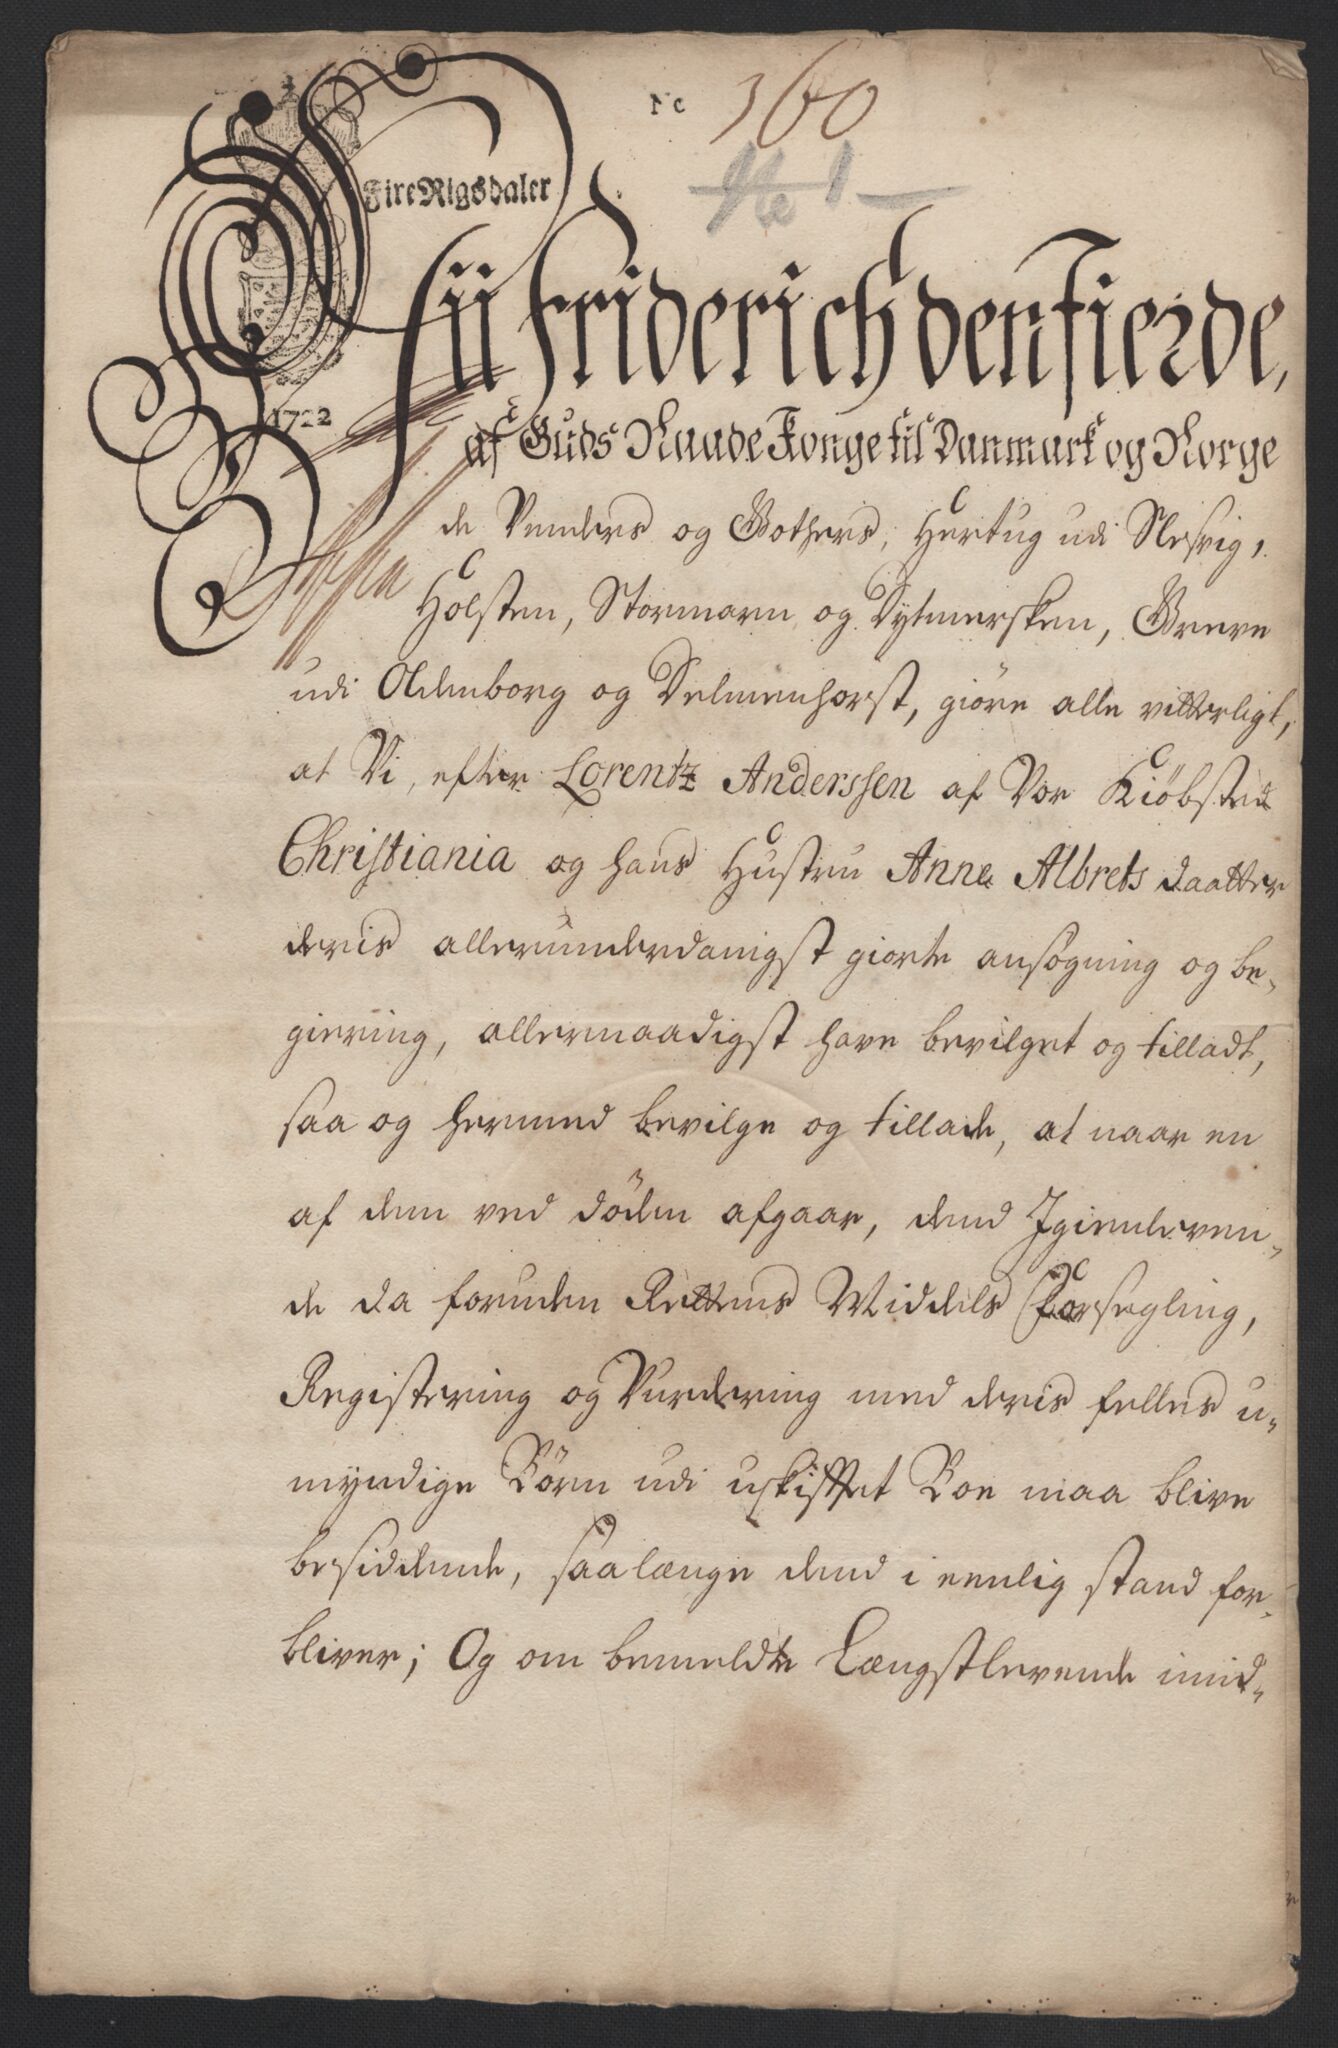 No 360
No 1
Fire Rigsdaler
1722
Vii Friderich den Fierde,
af Guds Naade Konge til Danmark og Norge
de Venders og Gothers, Hertug udi Slesvig,
Holsten, Stormarn og Dytmersken, Greve
udi Oldenborg og Delmenhorst, giöre alle vitterligt,
at Vi, efter Lorentz Anderssen af Vor Kiöbsted
Christiania og hans Hustru Anne Albrets daatter
deris allerunderdanigst giorte ansögning og be-
giering, allernaadigst have bevilget og tilladt,
saa og hermed bevilge og tillade, at naar en
af dem ved döden afgaar, dend Igienleven-
de da foruden Rettens Middels Forsegling,
Registering og Vurdering med deris felles u-
myndige Börn udi uskifftet Boe maa blive
besiddende, saalænge dend i eenlig stand for-
bliver; Og om bemeldte Længstlevende imid-